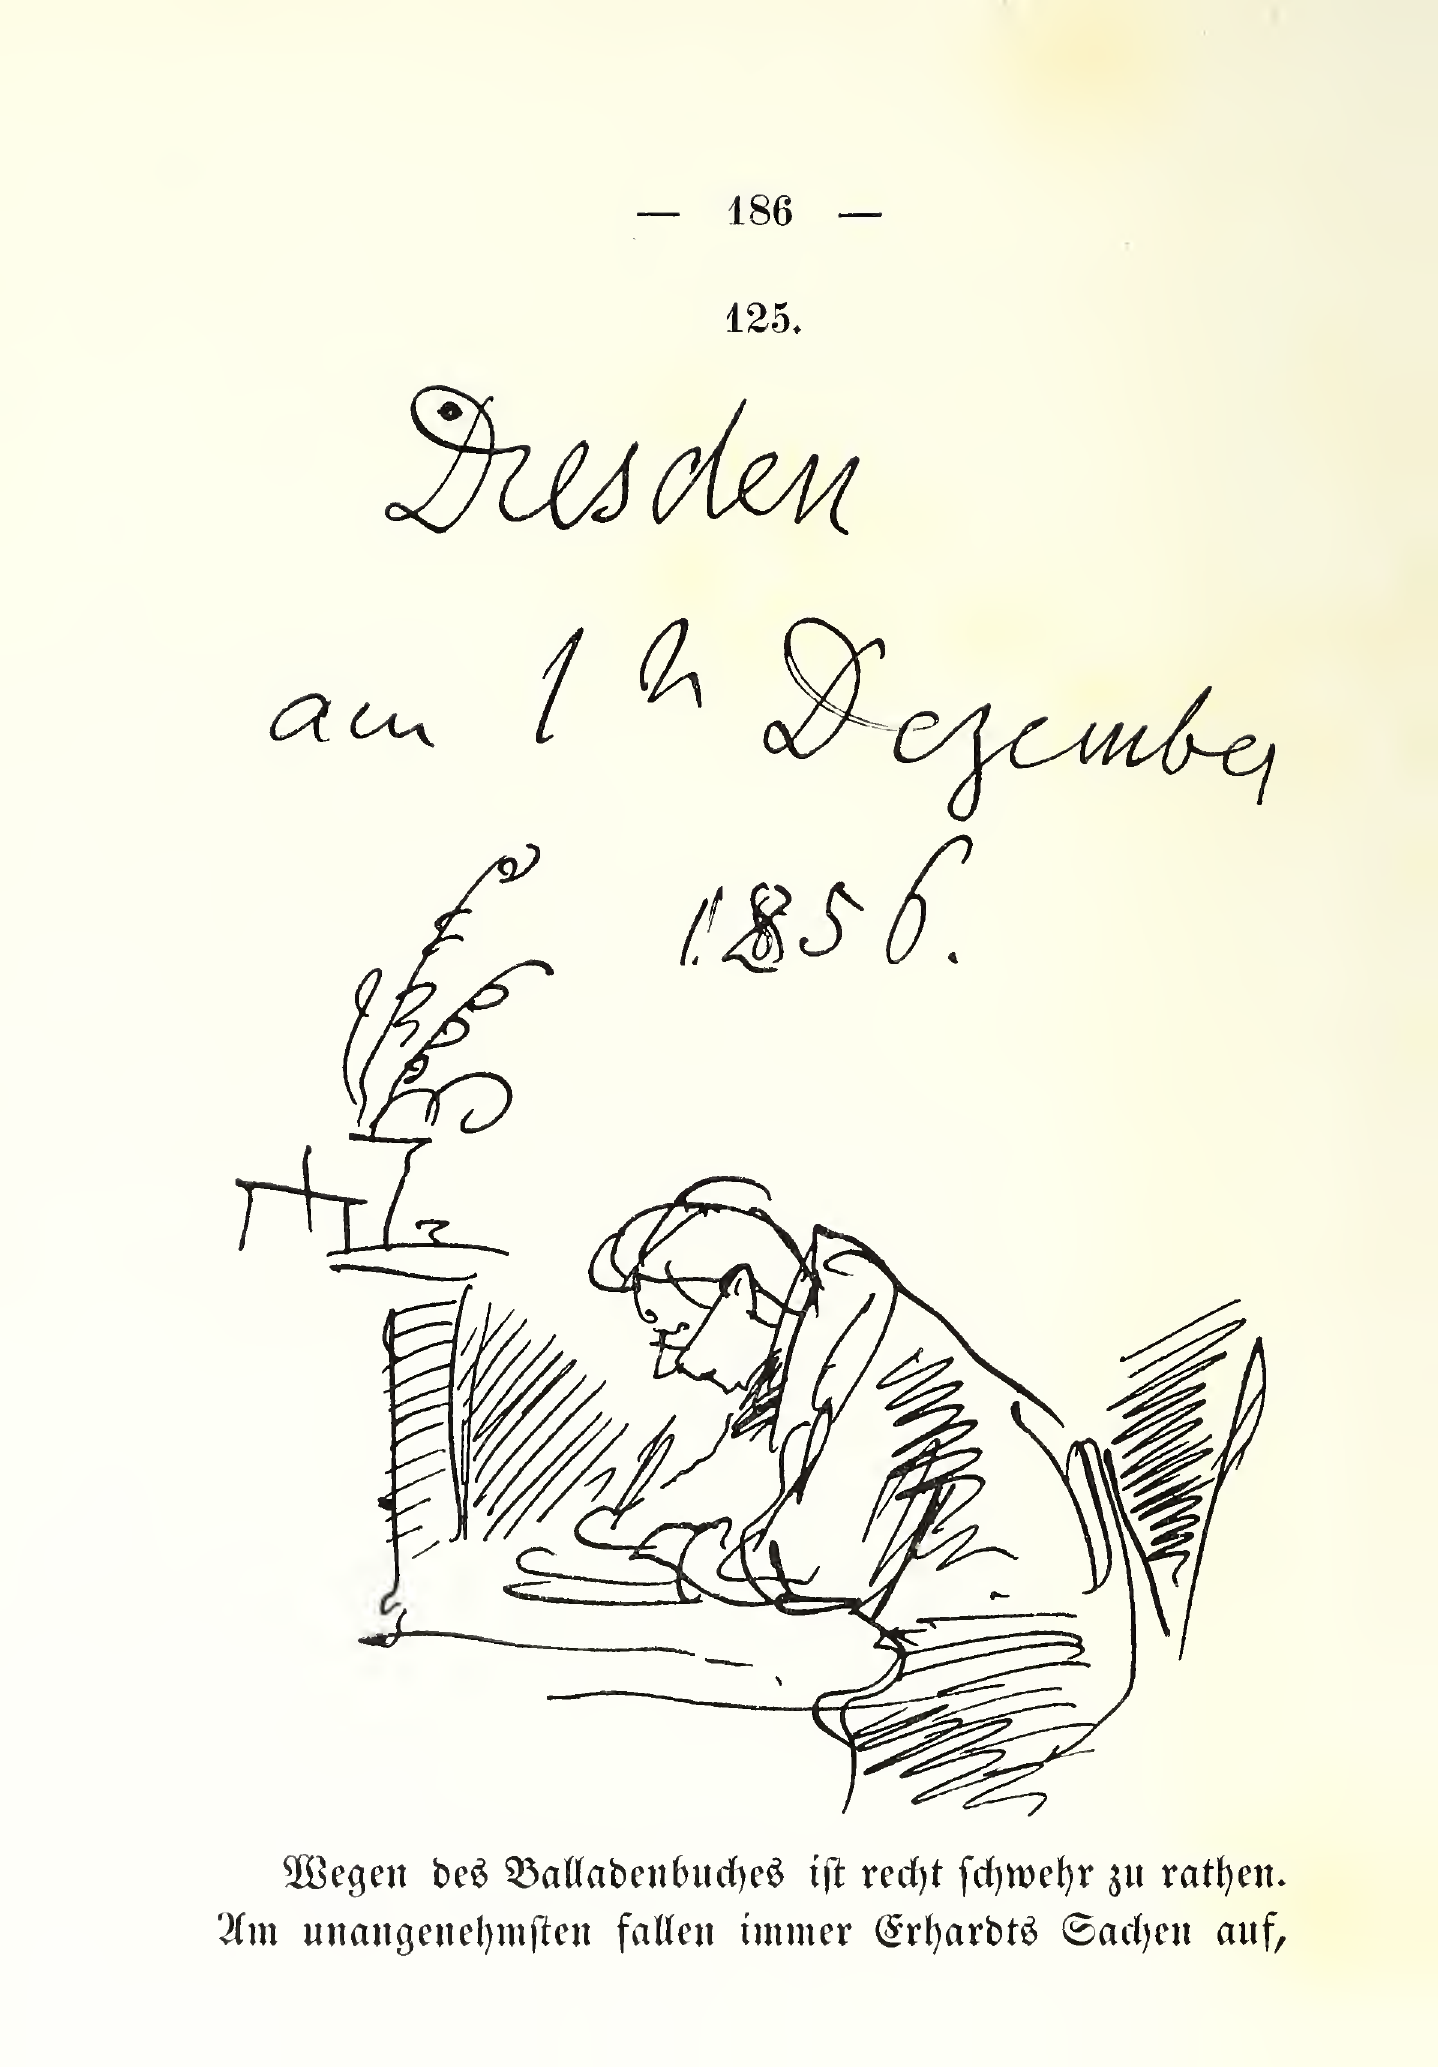 — 186 —
125.
Dresden
am 1 n Dezember
1856.
Wegen des Balladenbuches ist recht schwehr zu rathen.
Am unangenehmsten fallen immer Erhardts Sachen auf,